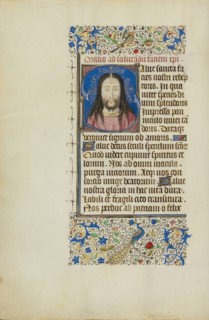 Oratio ad salutandam faciem xpi
Salue sancta fa
cies nostri redemp
toris. In qua
nitet species di
uini splendoris
Impressa pan
niculo niuei ca
doris. Dataque
veronice signum ob amoris.
Salue decus seculi speculum sanctor
Quod videre cupiunt spiritus ce
lorum. Nos ab omni macula
purga viciorum. Atque nos con
sorcio iunge beatorum. Salue
nostra gloria in hac vita dura
Labili et fragili cito transitura
Nos perduc ad patriam o felix